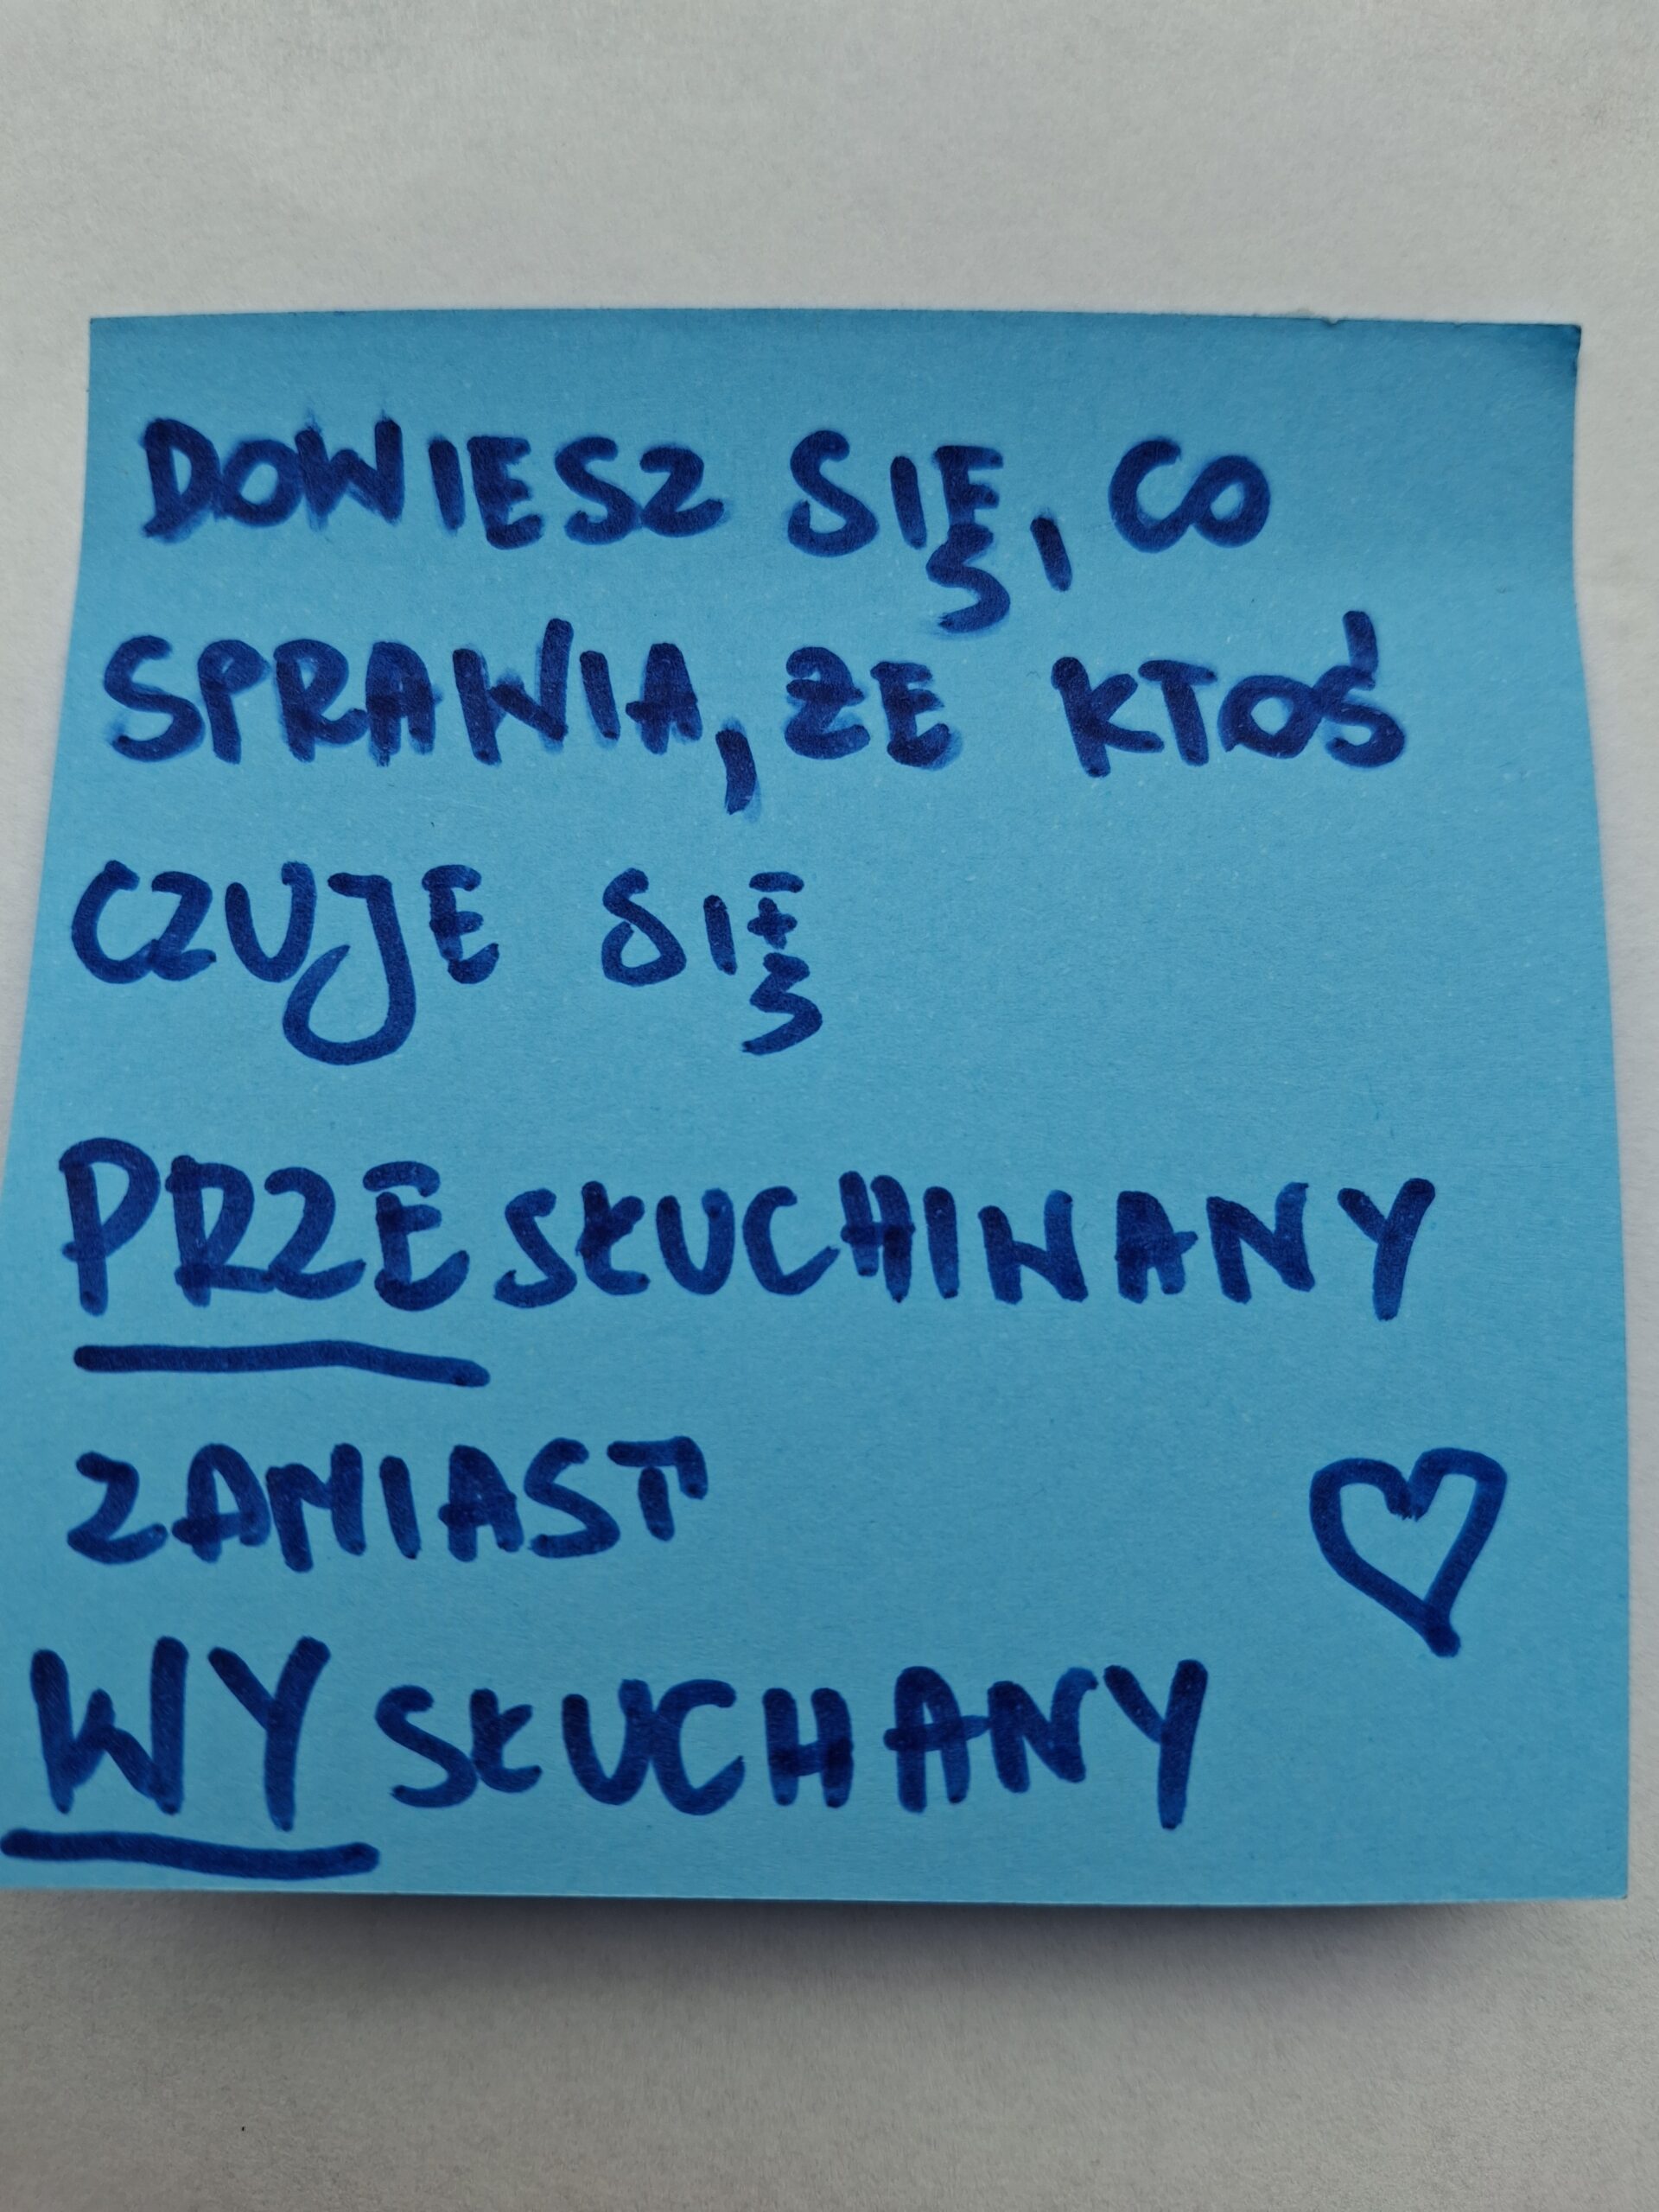 DOWIESZ SIĘ, CO
SPRAWIA, ŻE KTOŚ
CZUJE SIĘ
PRZESŁUCHINANY
ZAMIAST
WYSŁUCHANY